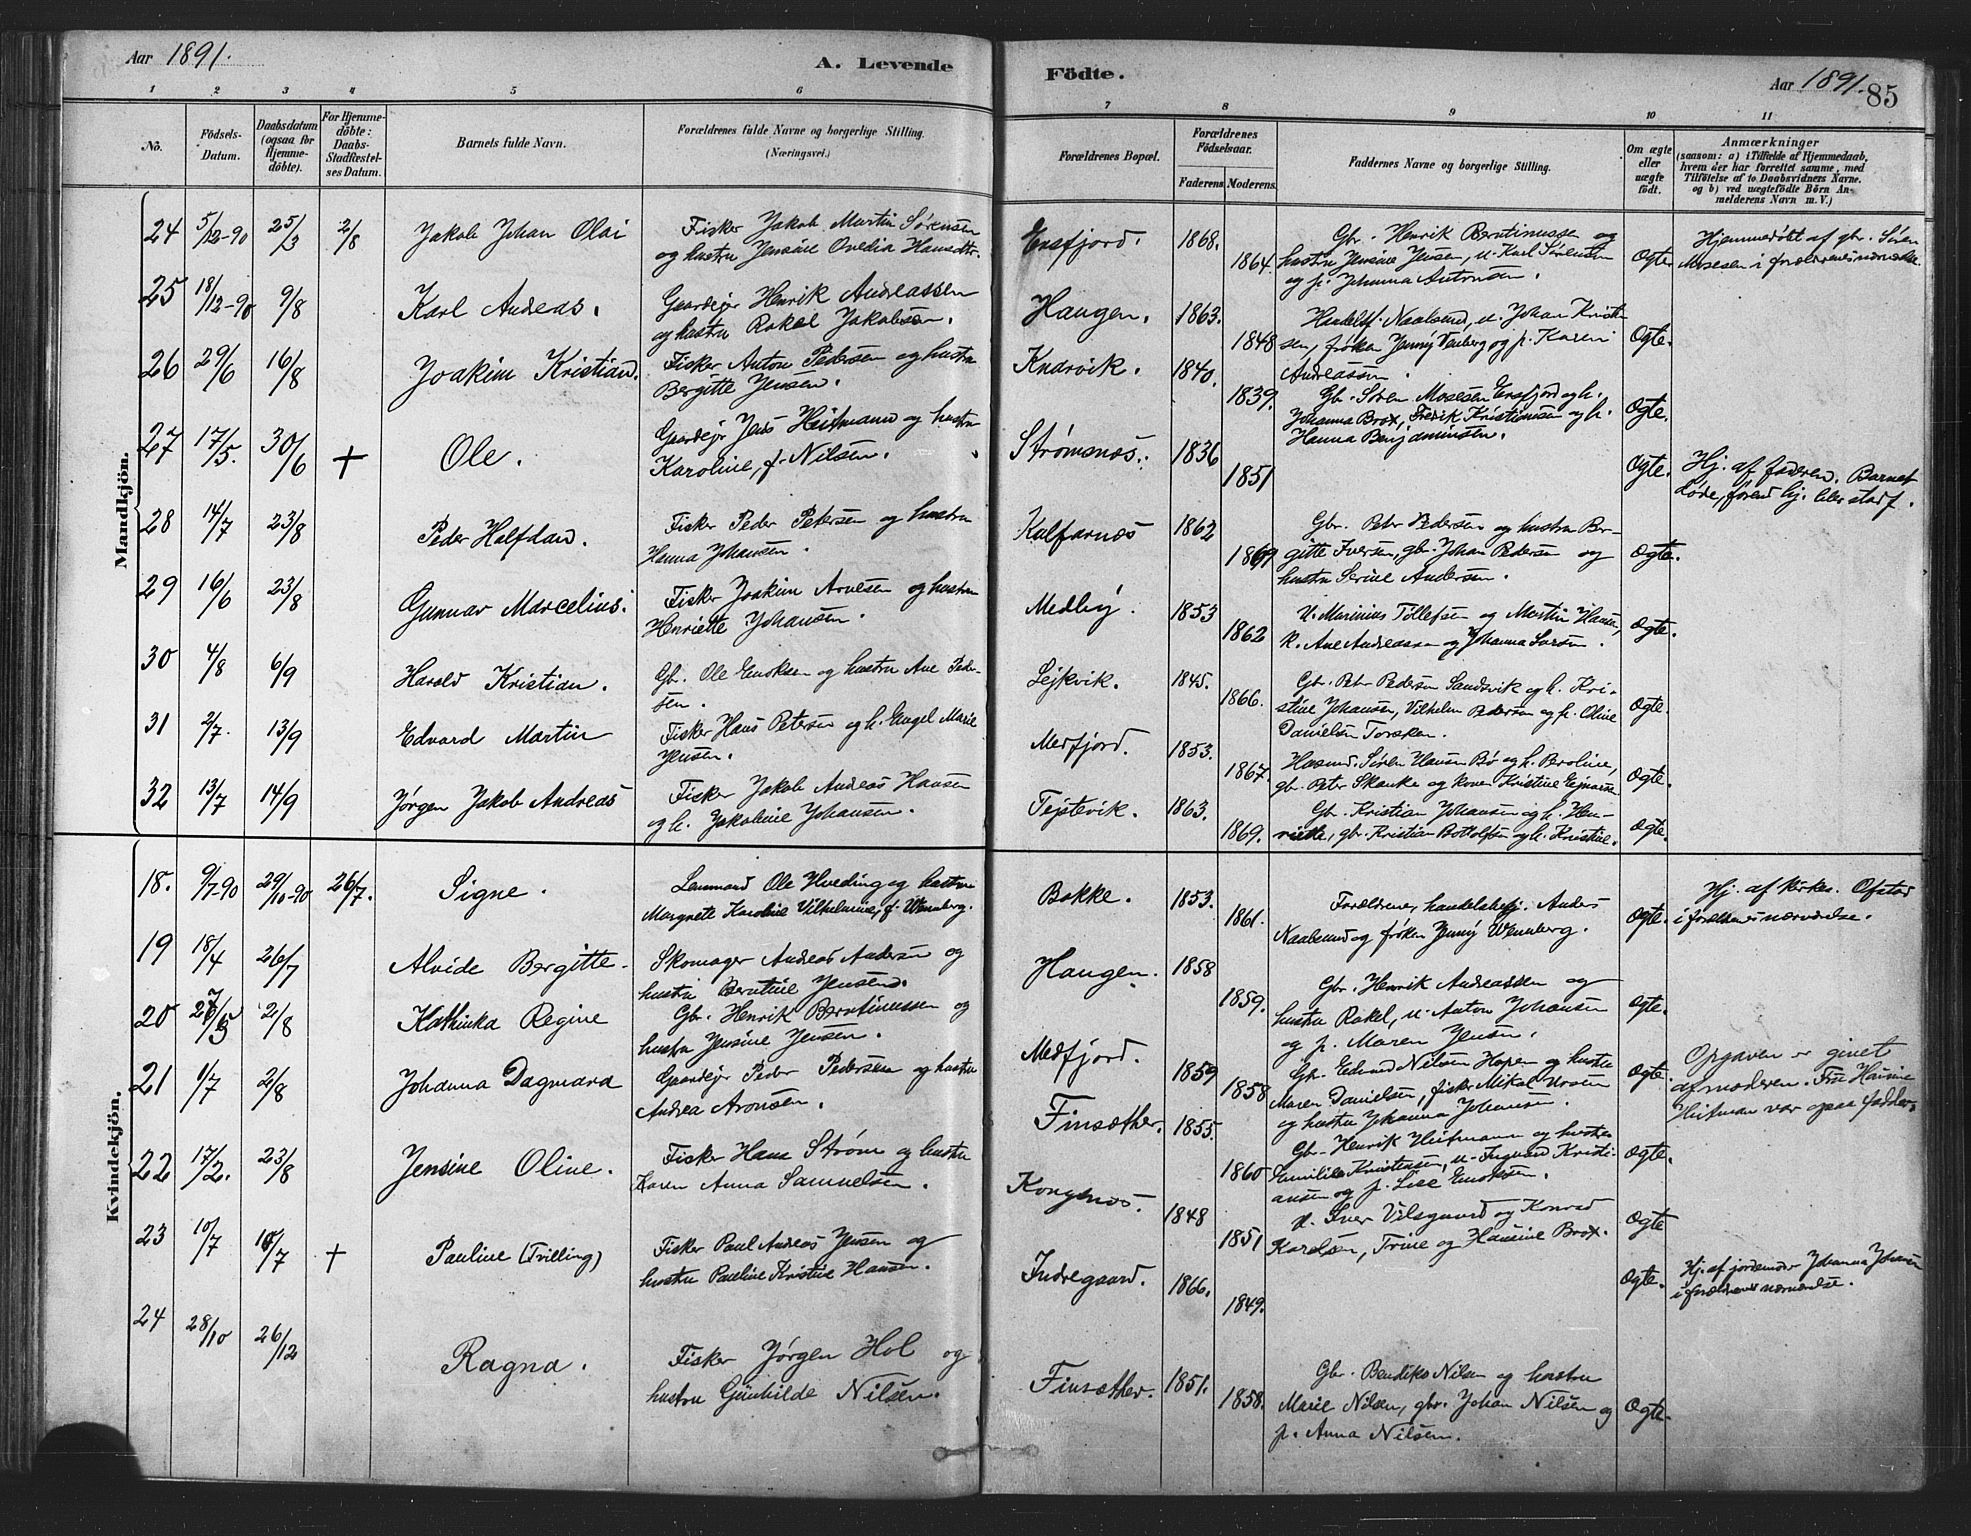 Aar 1891.
A. Levende
Födte.
Aar 1891.
85
1 2 3 4 5 6 7 8 9 10 11
No.
Födsels-
Datum.
Daabsdatum
(ogsaa for
Hjemme-
döbte).
For Hjemme-
döbte:
Daabs-
Stadfæstel-
ses Datum.
Barnets fulde Navn.
Forældrenes fulde Navne og borgerlige Stilling.
(Næringsvei.)
Forældrenes Bopæl.
Forældrenes
Födselsaar.
Faderens. Moderens.
Faddernes Navne og borgerlige Stilling.
Om ægte
eller
uægte
födt.
Anmærkninger
(saasom: a) i Tilfælde af Hjemmedaab,
hvem der har forrettet samme, med
Tilföielse af to Daabsvidners Navne.
og b) ved uægtefödte Börn An-
melderens Navn m. V.)
Mandkjön.
24 5/12-90 25/3 2/8 Jakob Johan Olai
Fisker Jakob Martin Sørensen
og hustru Jensine Ovedia Hansdtr.
Ersfjord. 1868. 1864.
Gbr. Henrik Berntinussen og
hustru Jensine Jensen, u. Karl Sørensen
og p. Johanna Antonsen.
Ogte
Hjemmedøbt af gbr. Søren
Mosesen i forældrenes nærværelse.
25 18/12-90 9/8 Karl Andreas.
Gaardejer Henrik Andreassen
og hustru Rakel Jakobsen.
Haugen. 1863. 1848
Handelsf. Naalsund, u. Johan Krist-
sen, frøken Jenny Wenberg og p. Karen
Andreassen.
Ogte.
26 29/6 16/8 Joakim Kristian.
Fisker Anton Pedersen og hustru
Bergitte Jensen.
Knarvik. 1840. 1839.
Gb. Søren Mosesen Ersfjord og h.
Johanna Brox, Fredrik Kristiansen og h.
Hanna Benjaminsen.
Ogte.
27 17/5. 30/6 + Ole.
Gaardejer Jens Heitmann og hustru
Karoline, f. Nilsen.
Strømsnæs. 1836 1851
Ogte.
Hj. af faderen. Barnet
døde, førend hj. blev stadf.
28 14/7 23/8 Peder Halfdan.
Fisker Peder Petersen og hustru
Hanna Johansen.
Kalfarnæs 1862 1869
Gbr. Peter Pedersen og hustru Ber-
gitte Iversen, gbr. Johan Pedersen og
hustru Serine Andersen.
Ogte.
29 16/6 23/8 Gunnar Marcelius.
Fisker Joakim Arnesen og hustru
Henriette Johansen.
Medby. 1853 1862
U. Marinius Tollefsen og Martin Hansen,
k. Ane Andreassen og Johanna Larsen.
Ogte.
30 4/8 6/9 Harold Kristian.
Gb. Ole Enoksen og hustru Ane Peder-
sen.
Lejkvik. 1845. 1866.
Gbr. Peter Pedersen Sandsvik og h. Kri-
stine Johansen, Vilhelm Pedersen og p. Oline
Danielsen Torsken.
Ogte.
31 2/7. 13/9 Edvard Martin
Fisker Hans Petersen og h. Engel Marie
Jensen.
Medfjord. 1853. 1867.
Husmd. Søren Hansen Bø og h. Beroline,
gbr. Peter Skanke og kone Kristine Ejnarsen
Ogte.
32 13/7 14/9 Jørgen Jakob Andreas
Fisker Jakob Andreas Hansen
og h. Jakobine Johansen.
Tejstevik. 1863. 1869.
Gbr. Kristian Johansen og h. Hen-
riette, gbr. Kristian Bottolfsen og h. Kristine.
Ogte.
Kvindekjön.
18. 9/7-90 29/10-90 26/7. Signe.
Lensmand Ole Hveding og hustru
Margrete Karoline Vilhelmine, f. Wennberg.
Bakke. 1853. 1861.
Forældrene, handelsbetj. Anders
Naalsund og frøken Jenny Wennberg.
Ogte.
Hj. af kirkes. Ofstad
i forældrenes nærværelse.
19 18/4 26/7 Alvide Bergitte.
Skomager Andreas Andersen og
hustru Berntine Jensen.
Haugen. 1858 1859.
Gbr. Henrik Andreassen og
hustru Rakel, u. Anton Johansen
og p. Maren Jensen.
Ogte.
20 27/5 2/8 Kathinka Regine
Gb. Henrik Berntinussen og
hustru Jensine Jensen.
Medfjord. 1859 1858
Gb. Edvard Nilsen Hopen og hustru
Maren Danielsen, fisker Mikal Mosen
og hustru Johanna Johansen.
Ogte.
21 1/7 2/8 Johanna Dagmara
Gaardejer Peder Pedersen og hustru
Andrea Aronsen.
Finsæther. 1855. 1860
Gb. Henrik Heitmann og hustru
Emilie Knutsen, u. Ingvard Kristi-
ansen og p. Lise Enoksen.
Ogte.
Opgaven er givet
af moderen. Fru Hansine
Heitman var ogsaa fadder.
22 17/2. 23/8 Jensine Oline.
Fisker Hans Strøm og hustru
Karen Anna Samuelsen.
Kongsnæs. 1848 1851
U. Iver Vilsgaard og Konrad
Karelsen, Trine og Hansine Brox.
Ogte
23 10/7 10/7 + Pauline (Tvilling)
Fisker Paul Andreas Jensen og
hustru Pauline Kristine Hansen.
Indregaard. 1866. 1849.
Ogte.
Hj. af jordemoder Johanna Johansen
i forældrenes nærværelse.
24 28/10 26/12 Ragna.
Fisker Jørgen Hol og
hustru Günhilde Nilsen.
Finsæther. 1851. 1858.
Gbr. Bendiks Nilsen og hustru
Marie Nilsen, gbr. Johan Nilsen og
p. Anna Nilsen.
Ogte.